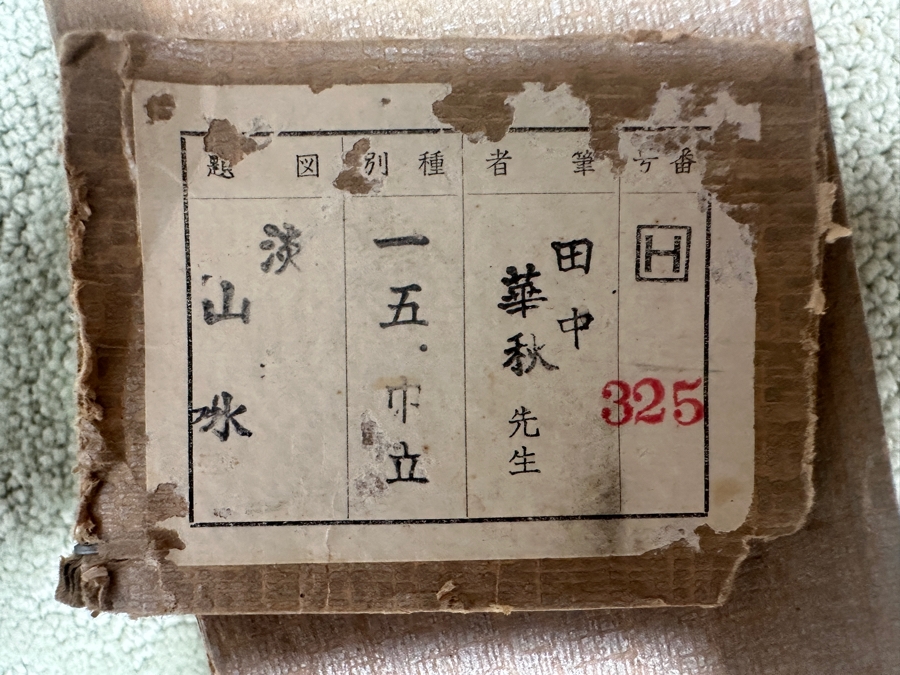 番号
H
325
筆者
田中
華秋
先生
種別
一五.巾立
図題
淡
山水